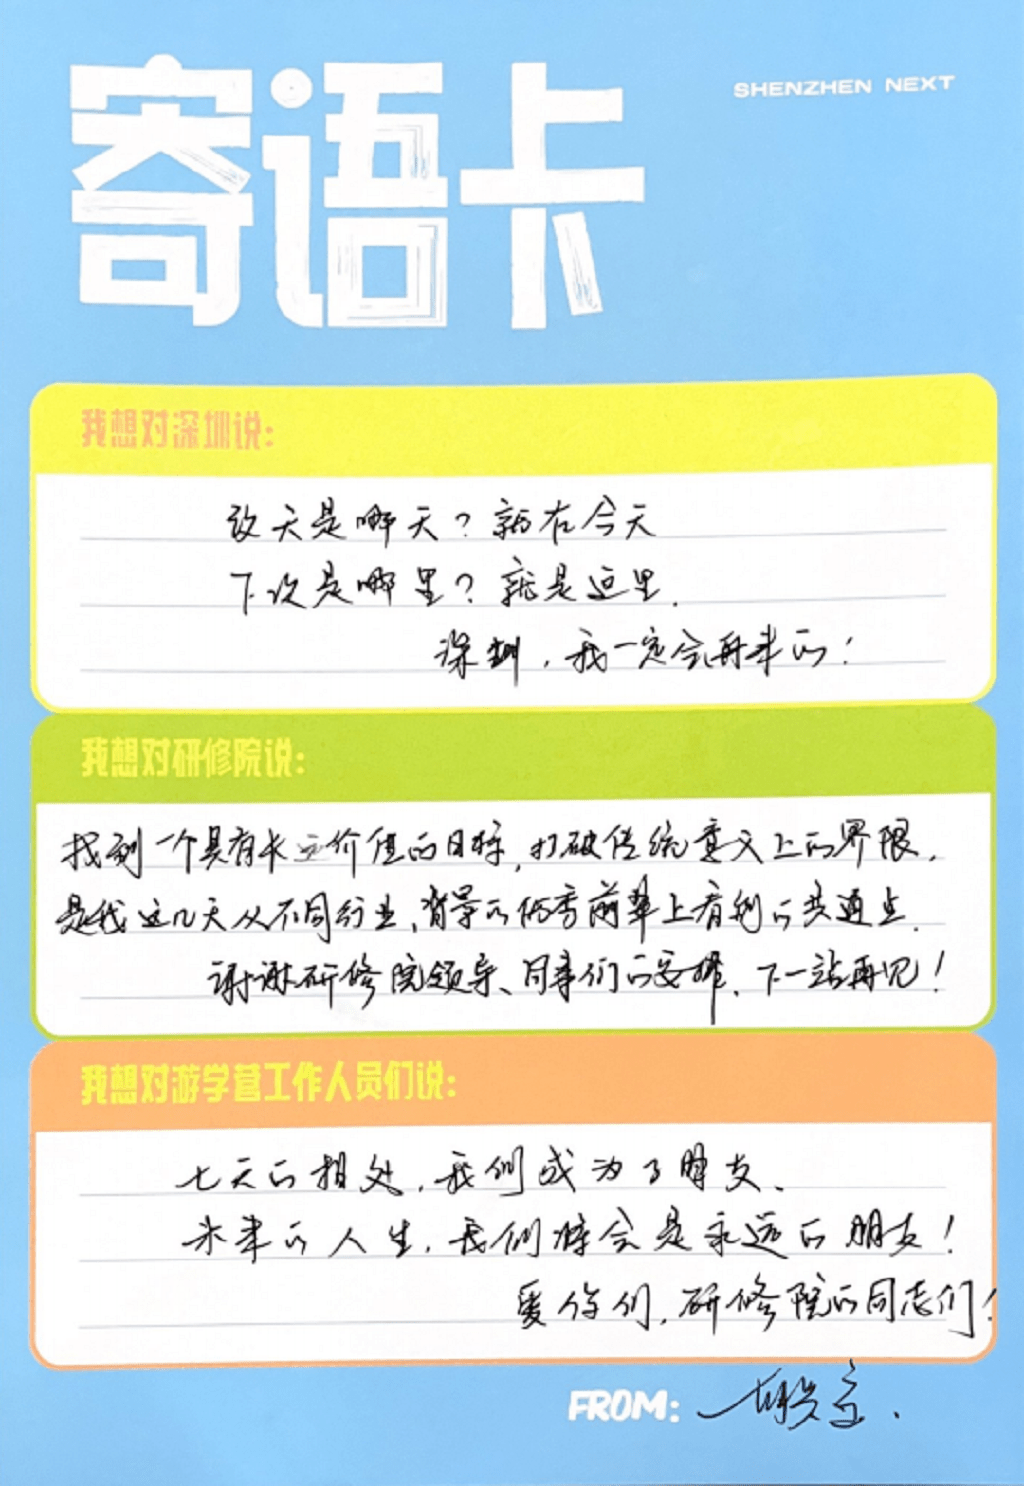 寄语卡
SHENZHEN NEXT
我想对深圳说:
改天是哪天?就在今天
下次是哪里?就是这里.
深圳,我一定会再来的!
我想对研修院说:
找到一个具有长远价值的目标,打破传统意义上的界限,
是我这几天从不同行业、背景的优秀前辈上看到的共通点.
谢谢研修院领导、同事们的安排、下一站再见!
我想对游学营工作人员们说:
七天的相处,我们成为了朋友、
未来的人生,我们将会是永远的朋友!
爱你们,研修院的同志们!
FROM: